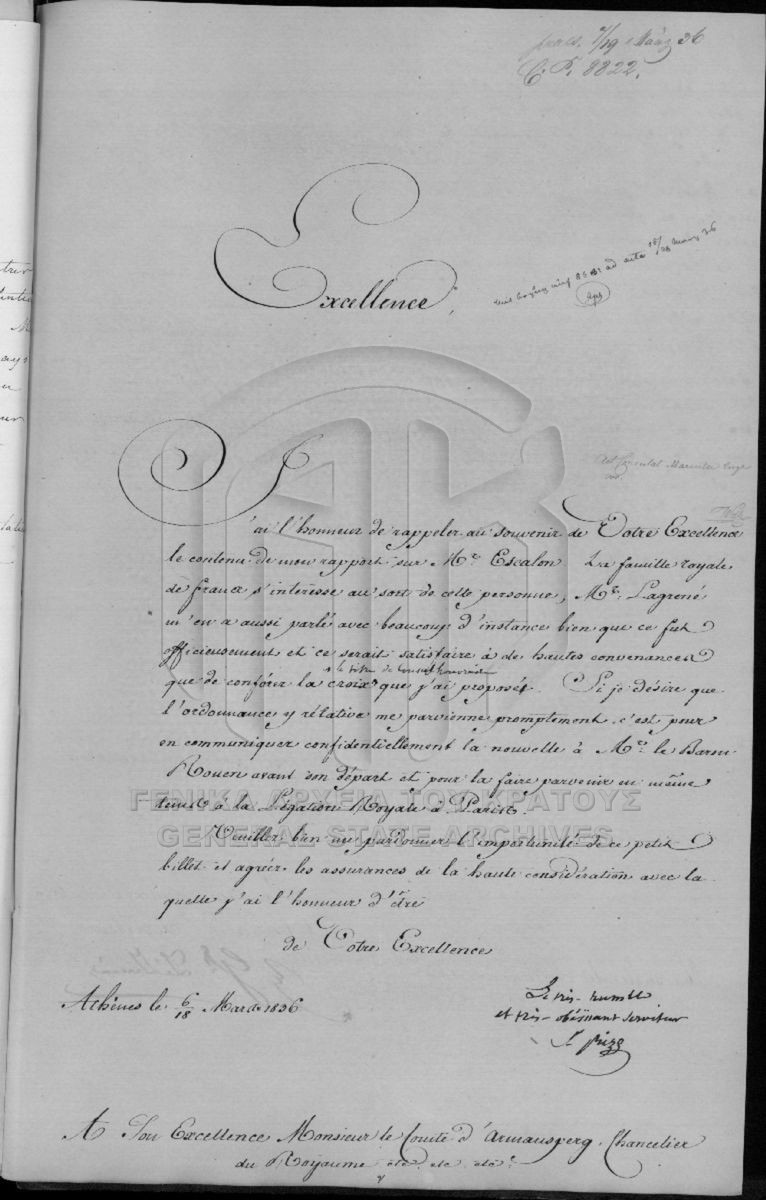 praes. 7/19 März 36
C. P. 8822.
Excellence,
ad acta 16/28 März 36
J'ai l'honneur de rappeler au souvenir de Votre Excellence
le contenu de mon rapport sur Mr. Escalon. La famille royale
de france s'intéresse au sort de cette personne, Mr. Lagrené
m'en a aussi parlé avec beaucoup d'instance bien que ce fut
officieusement et ce serait satisfaire à de hautes convenances
+ le titre de Consul honoraire
que de conférer la croix + que j'ai proposée. Si je désire que
l'ordonnance y rélative me parvienne promptement c'est pour
en communiquer confidentiellement la nouvelle à Mr. le Baron
Rouen avant son départ et pour la faire parvenir en même
tems à la Légation Royale à Paris.
Veuillez bien me pardonner l'importunité de ce petit
billet et agréer les assurances de la haute considération avec la
quelle j'ai l'honneur d'être
de Votre Excellence
Le très-humble
et très-obéissant serviteur
Athènes le 6/18 Mars 1836
A Son Excellence Monsieur le Comte d'Armansperg, Chancelier
du Royaume etc. etc. etc.
ΓΕΝΙΚΑ ΑΡΧΕΙΑ ΤΟΥ ΚΡΑΤΟΥΣ
GENERAL STATE ARCHIVES